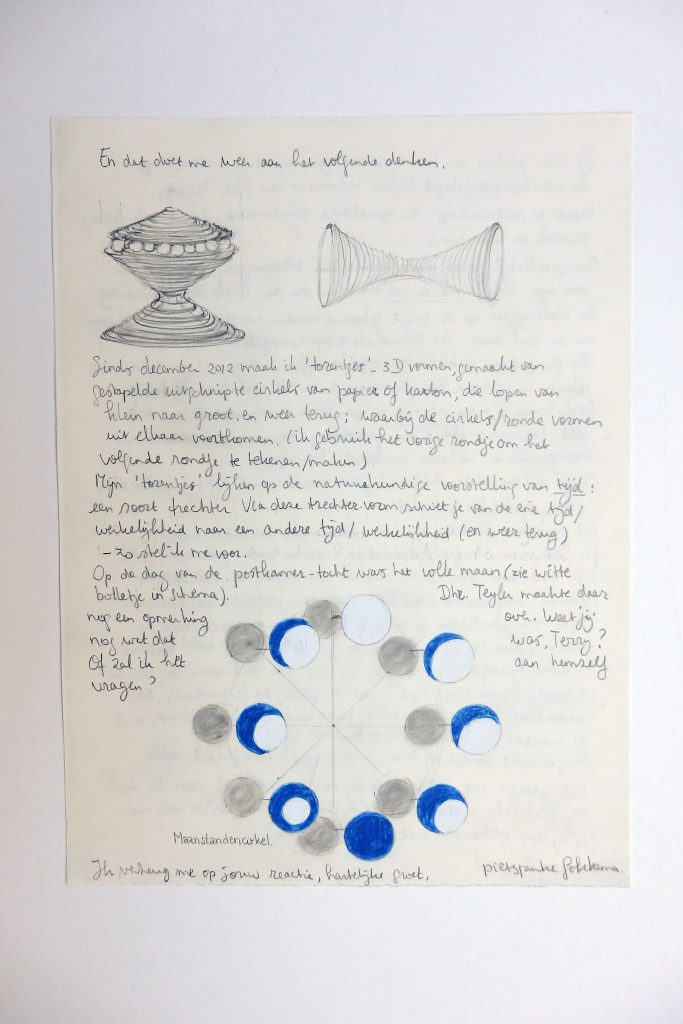 En dat doet me weer aan het volgende denken.
Sinds december 2012 maak ik 'torentjes' - 3D vormen, gemaakt van
gestapelde uitgeknipte cirkels van papier of karton, die lopen van
klein naar groot, en weer terug; waarbij de cirkels/ronde vormen
uit elkaar voortkomen. (ik gebruik het vorige rondje om het
volgende rondje te tekenen/maken).
Mijn 'torentjes' lijken op de natuurkundige voorstelling van tijd:
een soort trechter. Via deze trechter vorm schiet je van de ene tijd/
werkelijkheid naar een andere tijd/werkelijkheid (en weer terug)
- zo stel ik me voor.
Op de dag van de postkamer-tocht was het volle maan (zie witte
bolletje in schema). Dhr. Teyler maakte daar
nog een opmerking over. Weet jij
nog wat dat was, Terry?
Of zal ik het aan hemzelf
vragen?
Maanstandencirkel.
Ik verheug me op jouw reactie, hartelijke groet,
pietsjanke fokkema